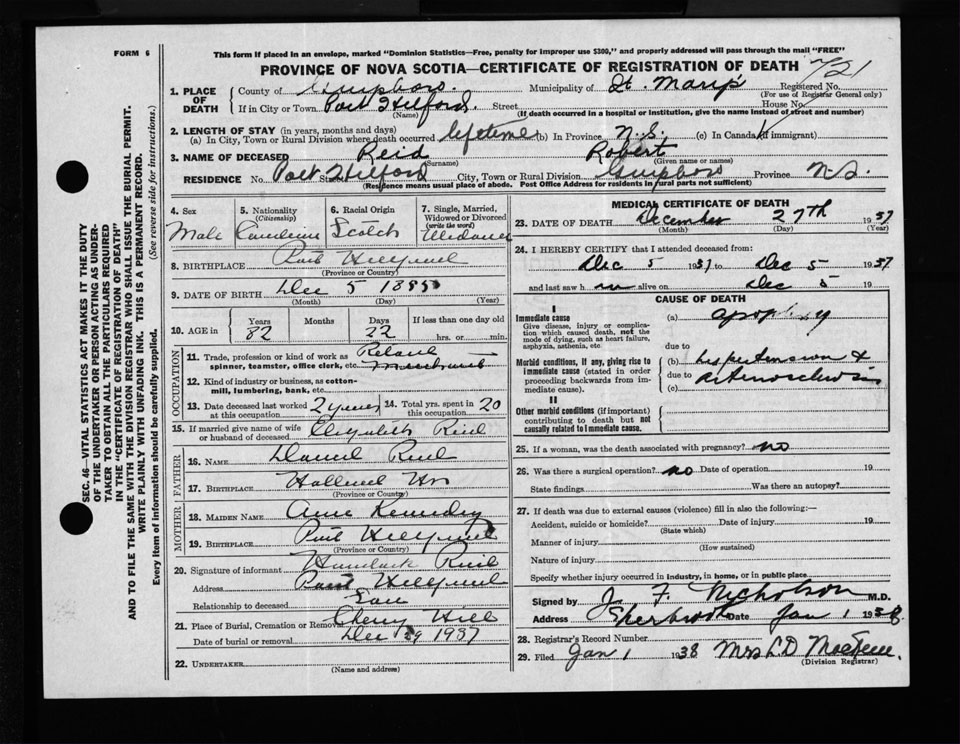 FORM 6
This form if placed in an envelope, marked "Dominion Statistics—Free, penalty for improper use $300," and properly addressed will pass through the mail "FREE"
PROVINCE OF NOVA SCOTIA—CERTIFICATE OF REGISTRATION OF DEATH
721
1. PLACE OF DEATH
County of Guysboro. Municipality of St. Mary's Registered No.
(For use of Registrar General only)
If in City or Town Port Hilford. Street House No.
(Name) (If death occurred in a hospital or institution, give the name instead of street and number)
2. LENGTH OF STAY (in years, months and days)
(a) In City, Town or Rural Division where death occurred lifetime (b) In Province N.S. (c) In Canada (if immigrant)
3. NAME OF DECEASED Reid Robert
(Surname) (Given name or names)
RESIDENCE No. Port Hilford Street City, Town or Rural Division Guysboro Province N.S.
(Residence means usual place of abode. Post Office Address for residents in rural parts not sufficient)
4. Sex
Male
5. Nationality
(Citizenship)
Canadian
6. Racial Origin
Scotch
7. Single, Married, Widowed or Divorced
(write the word)
Widower
8. BIRTHPLACE Port Hilford
(Province or Country)
9. DATE OF BIRTH Dec 5 1855
(Month) (Day) (Year)
10. AGE in
Years
82
Months
Days
22
If less than one day old
hrs. or min.
OCCUPATION
11. Trade, profession or kind of work as spinner, teamster, office clerk, etc. Retired Merchant
12. Kind of industry or business, as cotton-mill, lumbering, bank, etc.
13. Date deceased last worked at this occupation 2 years
14. Total yrs. spent in this occupation 20
15. If married give name of wife or husband of deceased Elizabeth Reid
FATHER
16. NAME Daniel Reid
17. BIRTHPLACE
(Province or Country)
MOTHER
18. MAIDEN NAME Anne Kennedy
19. BIRTHPLACE Port Hilford
(Province or Country)
20. Signature of informant Reid
Address Port Hilford
Relationship to deceased Son
21. Place of Burial, Cremation or Removal Cherry Hill
Date of burial or removal Dec 29 1937
22. UNDERTAKER
(Name and address)
MEDICAL CERTIFICATE OF DEATH
23. DATE OF DEATH December 27th 1937
(Month) (Day) (Year)
24. I HEREBY CERTIFY that I attended deceased from:
Dec 5 1937 to Dec 5 1937
and last saw h im alive on Dec 5 19
CAUSE OF DEATH
I
Immediate cause
Give disease, injury or complication which caused death, not the mode of dying, such as heart failure, asphyxia, asthenia, etc
(a) apoplexy
due to
Morbid conditions, if any, giving rise to immediate cause (stated in order proceeding backwards from immediate cause).
(b) hypertension &
due to arteriosclerosis
(c)
II
Other morbid conditions (if important) contributing to death but not causally related to immediate cause.
25. If a woman, was the death associated with pregnancy? no
26. Was there a surgical operation? no Date of operation 19
State findings Was there an autopsy?
27. If death was due to external causes (violence) fill in also the following:—
Accident, suicide or homicide? Date of injury 19
(State which)
Manner of injury
(How sustained)
Nature of injury
Specify whether injury occurred in industry, in home, or in public place
Signed by J. F. Nicholson M.D.
Address Sherbrooke Date Jan 1 1938
28. Registrar's Record Number
29. Filed Jan 1 1938 Mrs LD
(Division Registrar)
SEC. 46—VITAL STATISTICS ACT MAKES IT THE DUTY
OF THE UNDERTAKER OR PERSON ACTING AS UNDER-
TAKER TO OBTAIN ALL THE PARTICULARS REQUIRED
IN THE "CERTIFICATE OF REGISTRATION OF DEATH"
AND TO FILE THE SAME WITH THE DIVISION REGISTRAR WHO SHALL ISSUE THE BURIAL PERMIT.
WRITE PLAINLY WITH UNFADING INK. THIS IS A PERMANENT RECORD.
Every item of information should be carefully supplied. (See reverse side for instructions.)